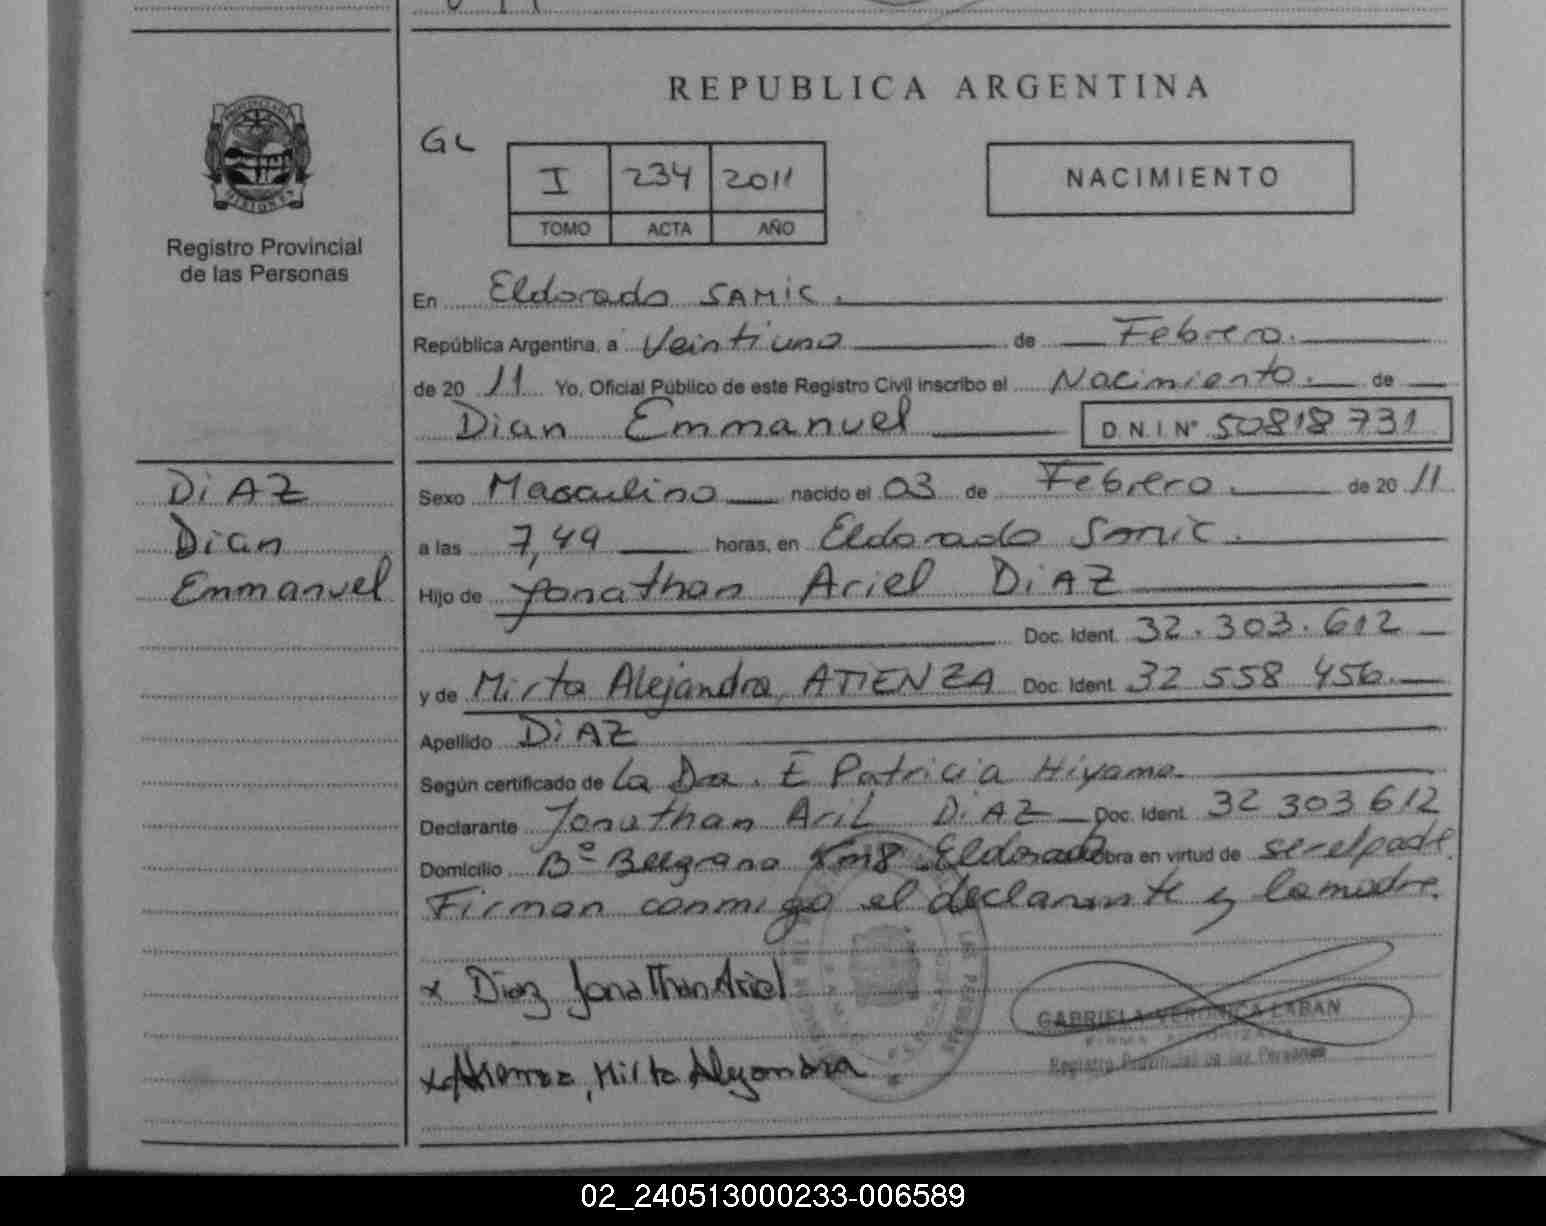 REPUBLICA ARGENTINA
GL
I 234 2011
TOMO ACTA AÑO
NACIMIENTO
Registro Provincial
de las Personas
En Eldorado SAMIC.
República Argentina, a Veintiuno de Febrero.
de 20 11 Yo, Oficial Público de este Registro Civil inscribo el Nacimiento. de
Dian Emmanuel D.N.I. Nº 50818731
DiAZ
Dian
Emmanuel
Sexo Masculino nacido el 03 de Febrero de 20 11
a las 7,49 horas, en Eldorado Samic.
Hijo de Jonathan Ariel DiAZ
Doc. Ident. 32.303.612
y de Mirta Alejandra ATIENZA Doc. Ident. 32 558 456.
Apellido DiAZ
Según certificado de La Dra. E Patricia Hiyama
Declarante Jonathan Aril DiAZ Doc. Ident. 32 303 612
Domicilio Bº Belgrano Km8 Eldorado obra en virtud de ser el padre.
Firman conmigo el declarante y la madre.
x Diaz Jonathan Ariel
GABRIELA VERONICA LABAN
FIRMA AUTORIZADA
Registro Provincial de las Personas
x Atienza, Mirta Alejandra
02_240513000233-006589